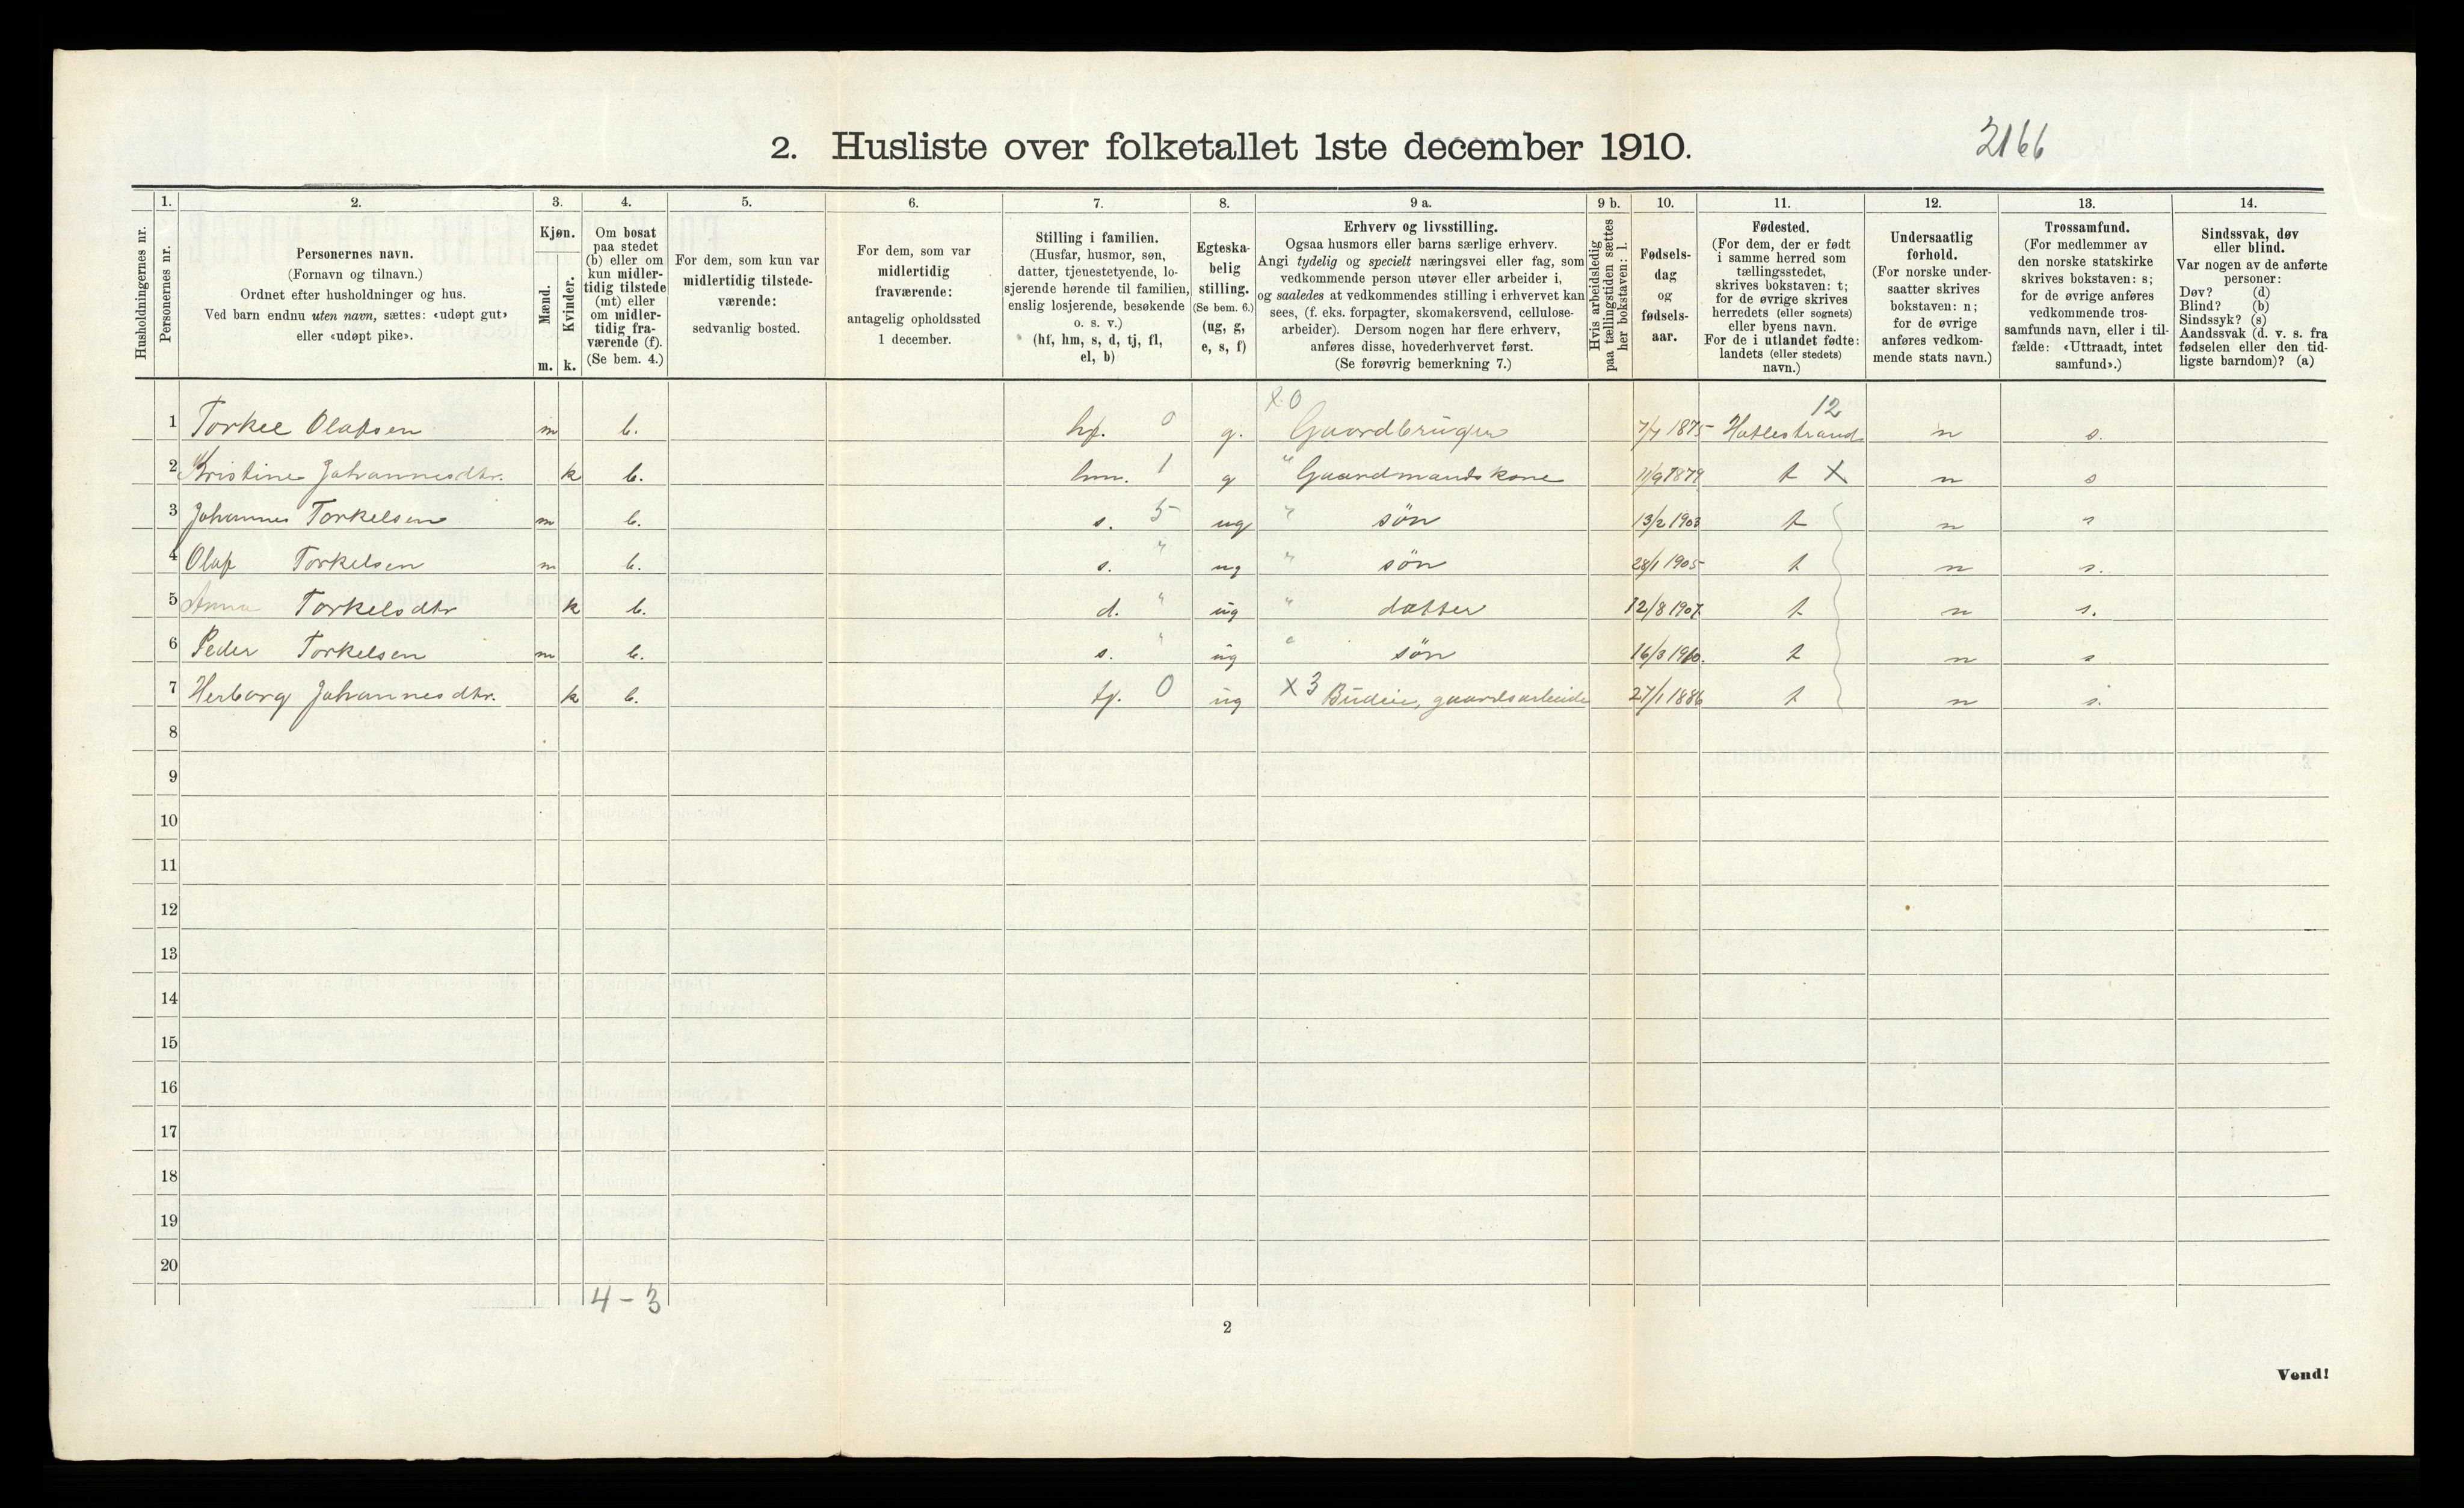 2. Husliste over folketallet 1ste december 1910. 2166
Husholdningernes nr.
1. Personernes nr.
2.
Personernes navn.
(Fornavn og tilnavn.)
Ordnet efter husholdninger og hus.
Ved barn endnu uten navn, sættes: «udøpt gut»
eller «udøpt pike».
3.
Kjøn.
Mænd. Kvinder.
m. k.
4.
Om bosat
paa stedet
(b) eller om
kun midler-
tidig tilstede
(mt) eller
om midler-
tidig fra-
værende (f).
(Se bem. 4.)
5.
For dem, som kun var
midlertidig tilstede-
værende:
sedvanlig bosted.
6.
For dem, som var
midlertidig
fraværende:
antagelig opholdssted
1 december.
7.
Stilling i familien.
(Husfar, husmor, søn,
datter, tjenestetyende, lo-
sjerende hørende til familien,
enslig losjerende, besøkende
o. s. v.)
(hf, hm, s, d, tj, fl,
el, b)
8.
Egteska-
belig
stilling.
(Se bem. 6.)
(ug, g,
e, s, f)
9 a.
Erhverv og livsstilling.
Ogsaa husmors eller barns særlige erhverv.
Angi tydelig og specielt næringsvei eller fag, som
vedkommende person utøver eller arbeider i,
og saaledes at vedkommendes stilling i erhvervet kan
sees, (f. eks. forpagter, skomakersvend, cellulose-
arbeider). Dersom nogen har flere erhverv,
anføres disse, hovederhvervet først.
(Se forøvrig bemerkning 7.)
9 b.
Hvis arbeidsledig
paa tællingstiden sættes
her bokstaven: l.
10.
Fødsels-
dag
og
fødsels-
aar.
11.
Fødested.
(For dem, der er født
i samme herred som
tællingsstedet,
skrives bokstaven: t;
for de øvrige skrives
herredets (eller sognets)
eller byens navn.
For de i utlandet fødte:
landets (eller stedets)
navn.)
12.
Undersaatlig
forhold.
(For norske under-
saatter skrives
bokstaven: n;
for de øvrige
anføres vedkom-
mende stats navn.)
13.
Trossamfund.
(For medlemmer av
den norske statskirke
skrives bokstaven: s;
for de øvrige anføres
vedkommende tros-
samfunds navn, eller i til-
fælde: «Uttraadt, intet
samfund».)
14.
Sindssvak, døv
eller blind.
Var nogen av de anførte
personer:
Døv? (d)
Blind? (b)
Sindssyk? (s)
Aandssvak (d. v. s. fra
fødselen eller den tid-
ligste barndom)? (a)
X 0 12
1 Torkel Olafsen m b. hf. 0 g. Gaardbruger 7/7 1875 Hatlestrand n s.
2 Kristine Johannesdtr. k b. hm. 1 g " Gaardmandskone 11/9 1879 t X n s
3 Johannes Torkelsen m b. s. 5 ug " søn 13/2 1903 t n s
4 Olaf Torkelsen m b. s. " ug " søn 28/1 1905 t n s.
5 Anna Torkelsdtr k b. d. " ug " datter 12/8 1907. t n s.
6 Peder Torkelsen m b. s. " ug " søn 16/3 1910. t n s
7 Herborg Johannesdtr. k b. tj. 0 ug X 3 Budeie, gaardsarbeide 27/1 1886 t n s.
8
9
10
11
12
13
14
15
16
17
18
19
20
4 - 3
2
Vend!